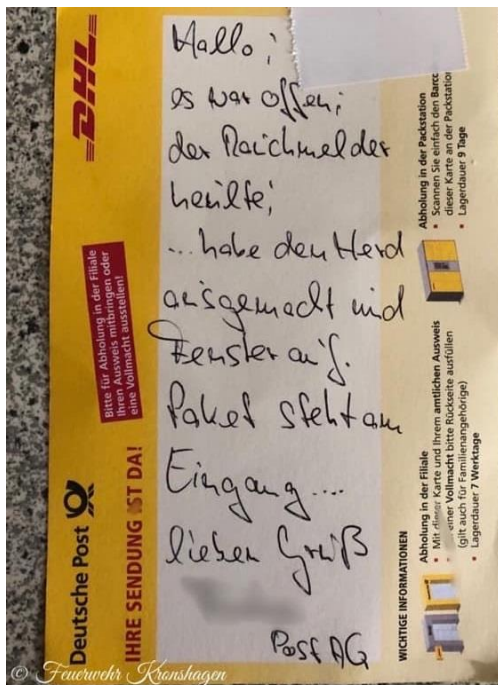 Hallo;
es war offen;
der Rauchmelder
heulte;
...habe den Herd
ausgemacht und
Fenster auf.
Paket steht am
Eingang....
lieben Gruß
Post AG
DHL
Bitte für Abholung in der Filiale
Ihren Ausweis mitbringen oder
eine Vollmacht ausstellen!
Deutsche Post
IHRE SENDUNG IST DA!
WICHTIGE INFORMATIONEN
Abholung in der Filiale
• Mit dieser Karte und Ihrem amtlichen Ausweis
einer Vollmacht bitte Rückseite ausfüllen
(gilt auch für Familienangehörige)
• Lagerdauer 7 Werktage
Abholung in der Packstation
• Scannen Sie einfach den
dieser Karte an der Packstation
• Lagerdauer 9 Tage
© Feuerwehr Kronshagen